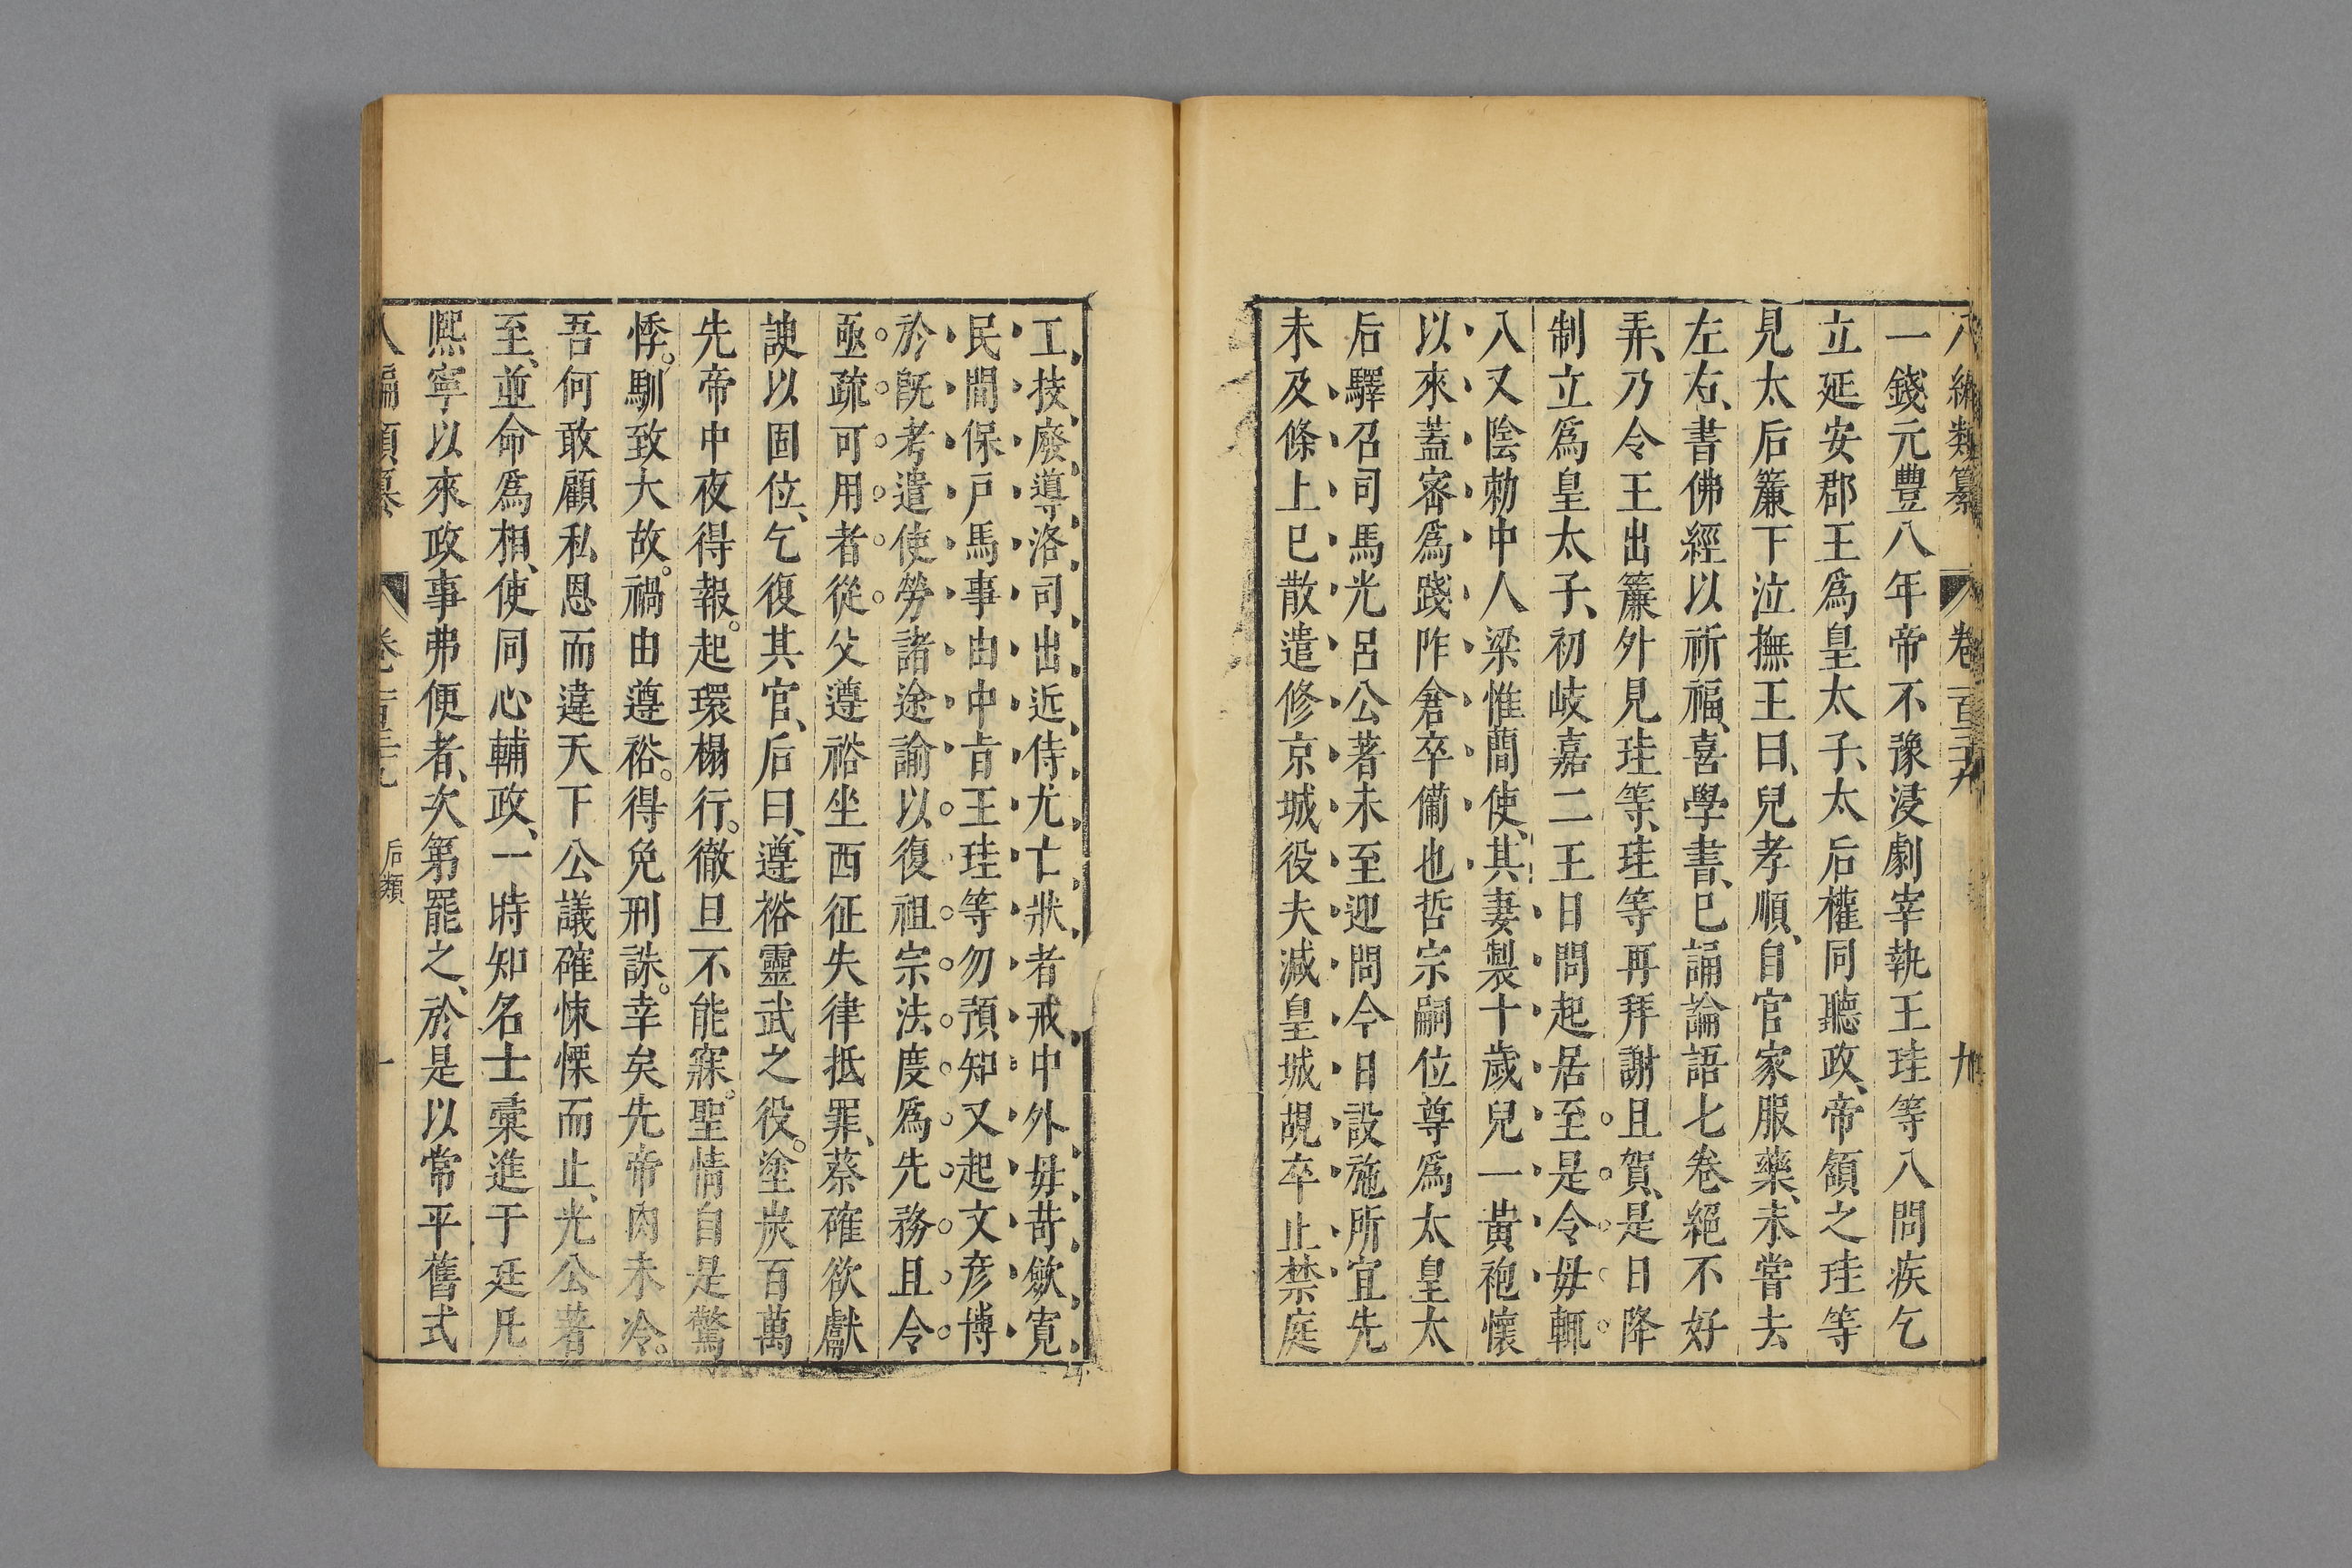 八編類纂 卷一百三十九 九
一錢元豐八年帝不豫浸劇宰執王珪等入問疾乞
立延安郡王爲皇太子、太后權同聽政、帝頷之珪等
見太后簾下泣撫王曰、兒孝順、自官家服藥、未嘗去
左右、書佛經以祈福、喜學書、已誦論語七卷絕不好
弄、乃令王出簾外見珪等、珪等再拜謝且賀、是日降
制立爲皇太子、初岐嘉二王日問起居至是令毋輒
入又陰勅中人梁惟簡使、其妻製十歲兒一黃袍懷
以來蓋密爲踐阼倉卒備也哲宗嗣位尊爲太皇太
后驛召司馬光呂公著未至迎問今日設施所宜先
未及條上已散遣修京城役夫減皇城覘卒止禁庭
工技廢導洛司出近侍尤亡狀者戒中外毋苛斂寬
民間保戶馬事由中旨王珪等勿預知又起文彥博
於旣考遣使勞諸途諭以復祖宗法度爲先務且令
亟疏可用者從父遵裕坐西征失律抵罪、蔡確欲獻
諛以固位、乞復其官、后曰、遵裕靈武之役。塗炭百萬
先帝中夜得報。起環榻行。徹旦不能寐。聖情自是驚
悸。馴致大故。禍由遵裕。得免刑誅。幸矣先帝肉未冷。
吾何敢顧私恩而違天下公議確悚慄而止、光公著
至、並命爲相、使同心輔政、一時知名士彙進于廷凡
熙寧以來政事弗便者、次第罷之、於是以常平舊式
編類纂 后類